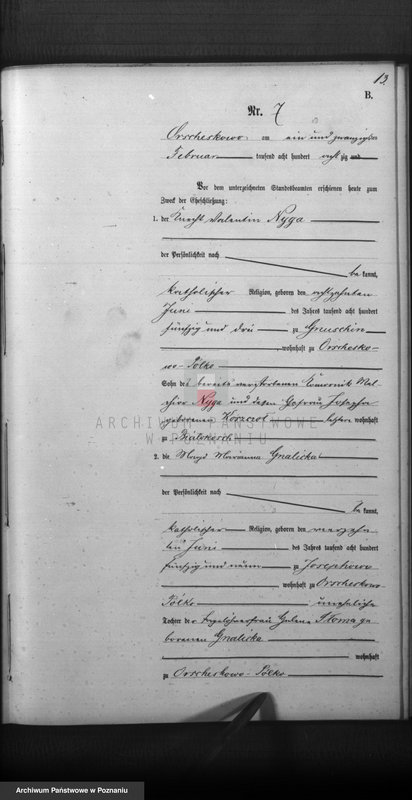 13.
B.
Nr. 7
Orscheskowo am ein und zwanzigsten
Februar tausend acht hundert acht zig und
Vor dem unterzeichneten Standesbeamten erschienen heute zum
Zweck der Eheschließung:
1. der Knecht Valentin Nyga
der Persönlichkeit nach
be kannt,
katholischer Religion, geboren den achtzehnten
Juni des Jahres tausend acht hundert
fünfzig und drei zu Gnuschin
wohnhaft zu Orschesko-
wo-Polko
Sohn des bereits verstorbenen Komornik Mel-
chior Nyga und dessen Ehefrau Josepha
geborenen letztere wohnhaft
zu
2. die Magd Marianna Gnalicka
der Persönlichkeit nach
be kannt,
katholischer Religion, geboren den vierzehn-
ten Juni des Jahres tausend acht hundert
fünfzig und neun zu Josephowo
wohnhaft zu Orscheskowo
Polko uneheliche
Tochter der Tagelöhnerfrau Thoma ge-
borenen Gnalicka
wohnhaft
zu Orscheskowo-Polko
ARCHIWUM PAŃSTWOWE
W POZNANIU
Archiwum Państwowe w Poznaniu